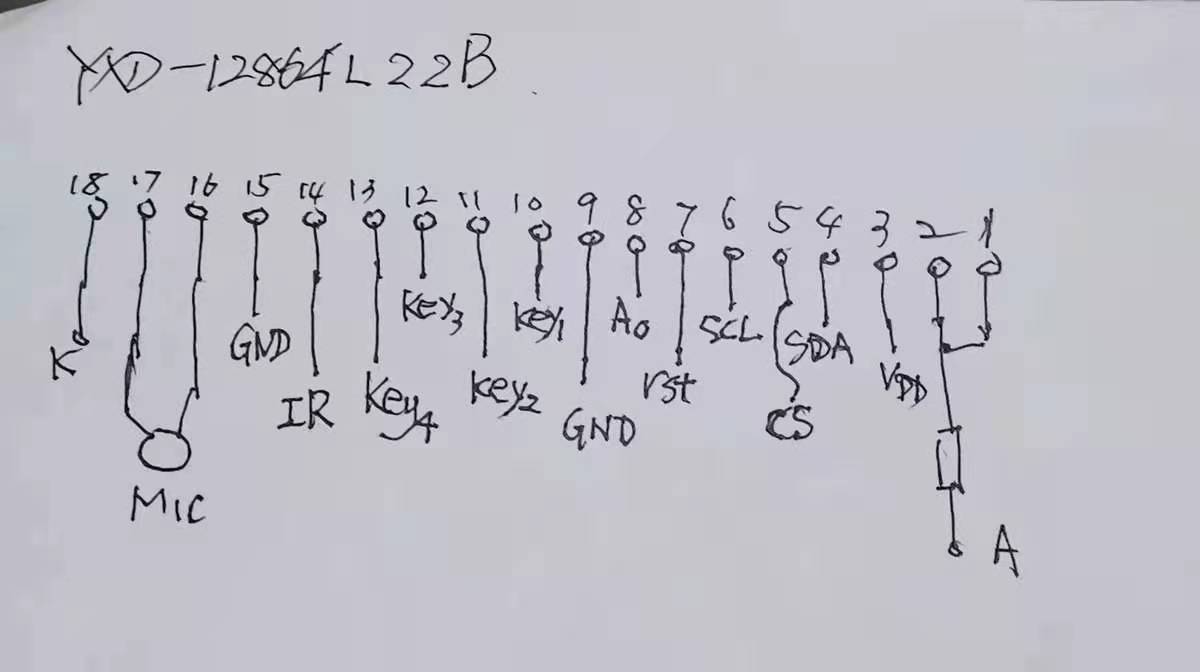 YXD-12864L22B
18 17 16 15 14 13 12 11 10 9 8 7 6 5 4 3 2 1
K GND IR Key4 Key3 Key2 Key1 GND A0 rst SCL CS SDA VDD
MIC A